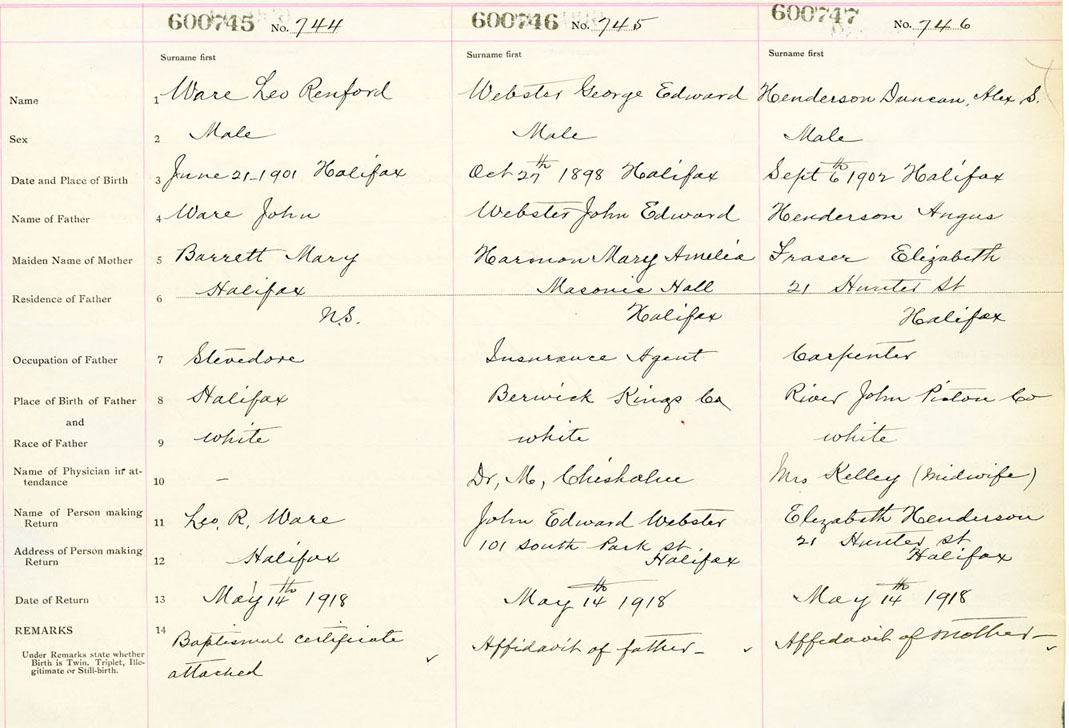 600745 No. 744 600746 No. 745 600747 No. 746
Surname first Surname first Surname first
Name 1 Ware Leo Renford Webster George Edward Henderson Duncan, Alex S.
Sex 2 Male Male Male
Date and Place of Birth 3 June 21-1901 Halifax Oct 27th 1898 Halifax Sept 6th 1902 Halifax
Name of Father 4 Ware John Webster John Edward Henderson Angus
Maiden Name of Mother 5 Barrett Mary Harmon Mary Amelia Fraser Elizabeth
Residence of Father 6 Halifax Masonic Hall 21 Hunter St
N.S. Halifax Halifax
Occupation of Father 7 Stevedore Insurance Agent Carpenter
Place of Birth of Father 8 Halifax Berwick Kings Co River John Picton Co
and
Race of Father 9 white white white
Name of Physician in at-
tendance 10 – Dr, M, Chisholm Mrs Kelley (midwife)
Name of Person making
Return 11 Leo. R. Ware John Edward Webster Elizabeth Henderson
Address of Person making 101 South Park St 21 Hunter St
Return 12 Halifax Halifax Halifax
Date of Return 13 May 14th 1918 May 14th 1918 May 14th 1918
REMARKS 14 Baptismal certificate Affidavit of father – Affidavit of mother –
Under Remarks state whether
Birth is Twin, Triplet, Ille-
gitimate or Still-birth.
attached